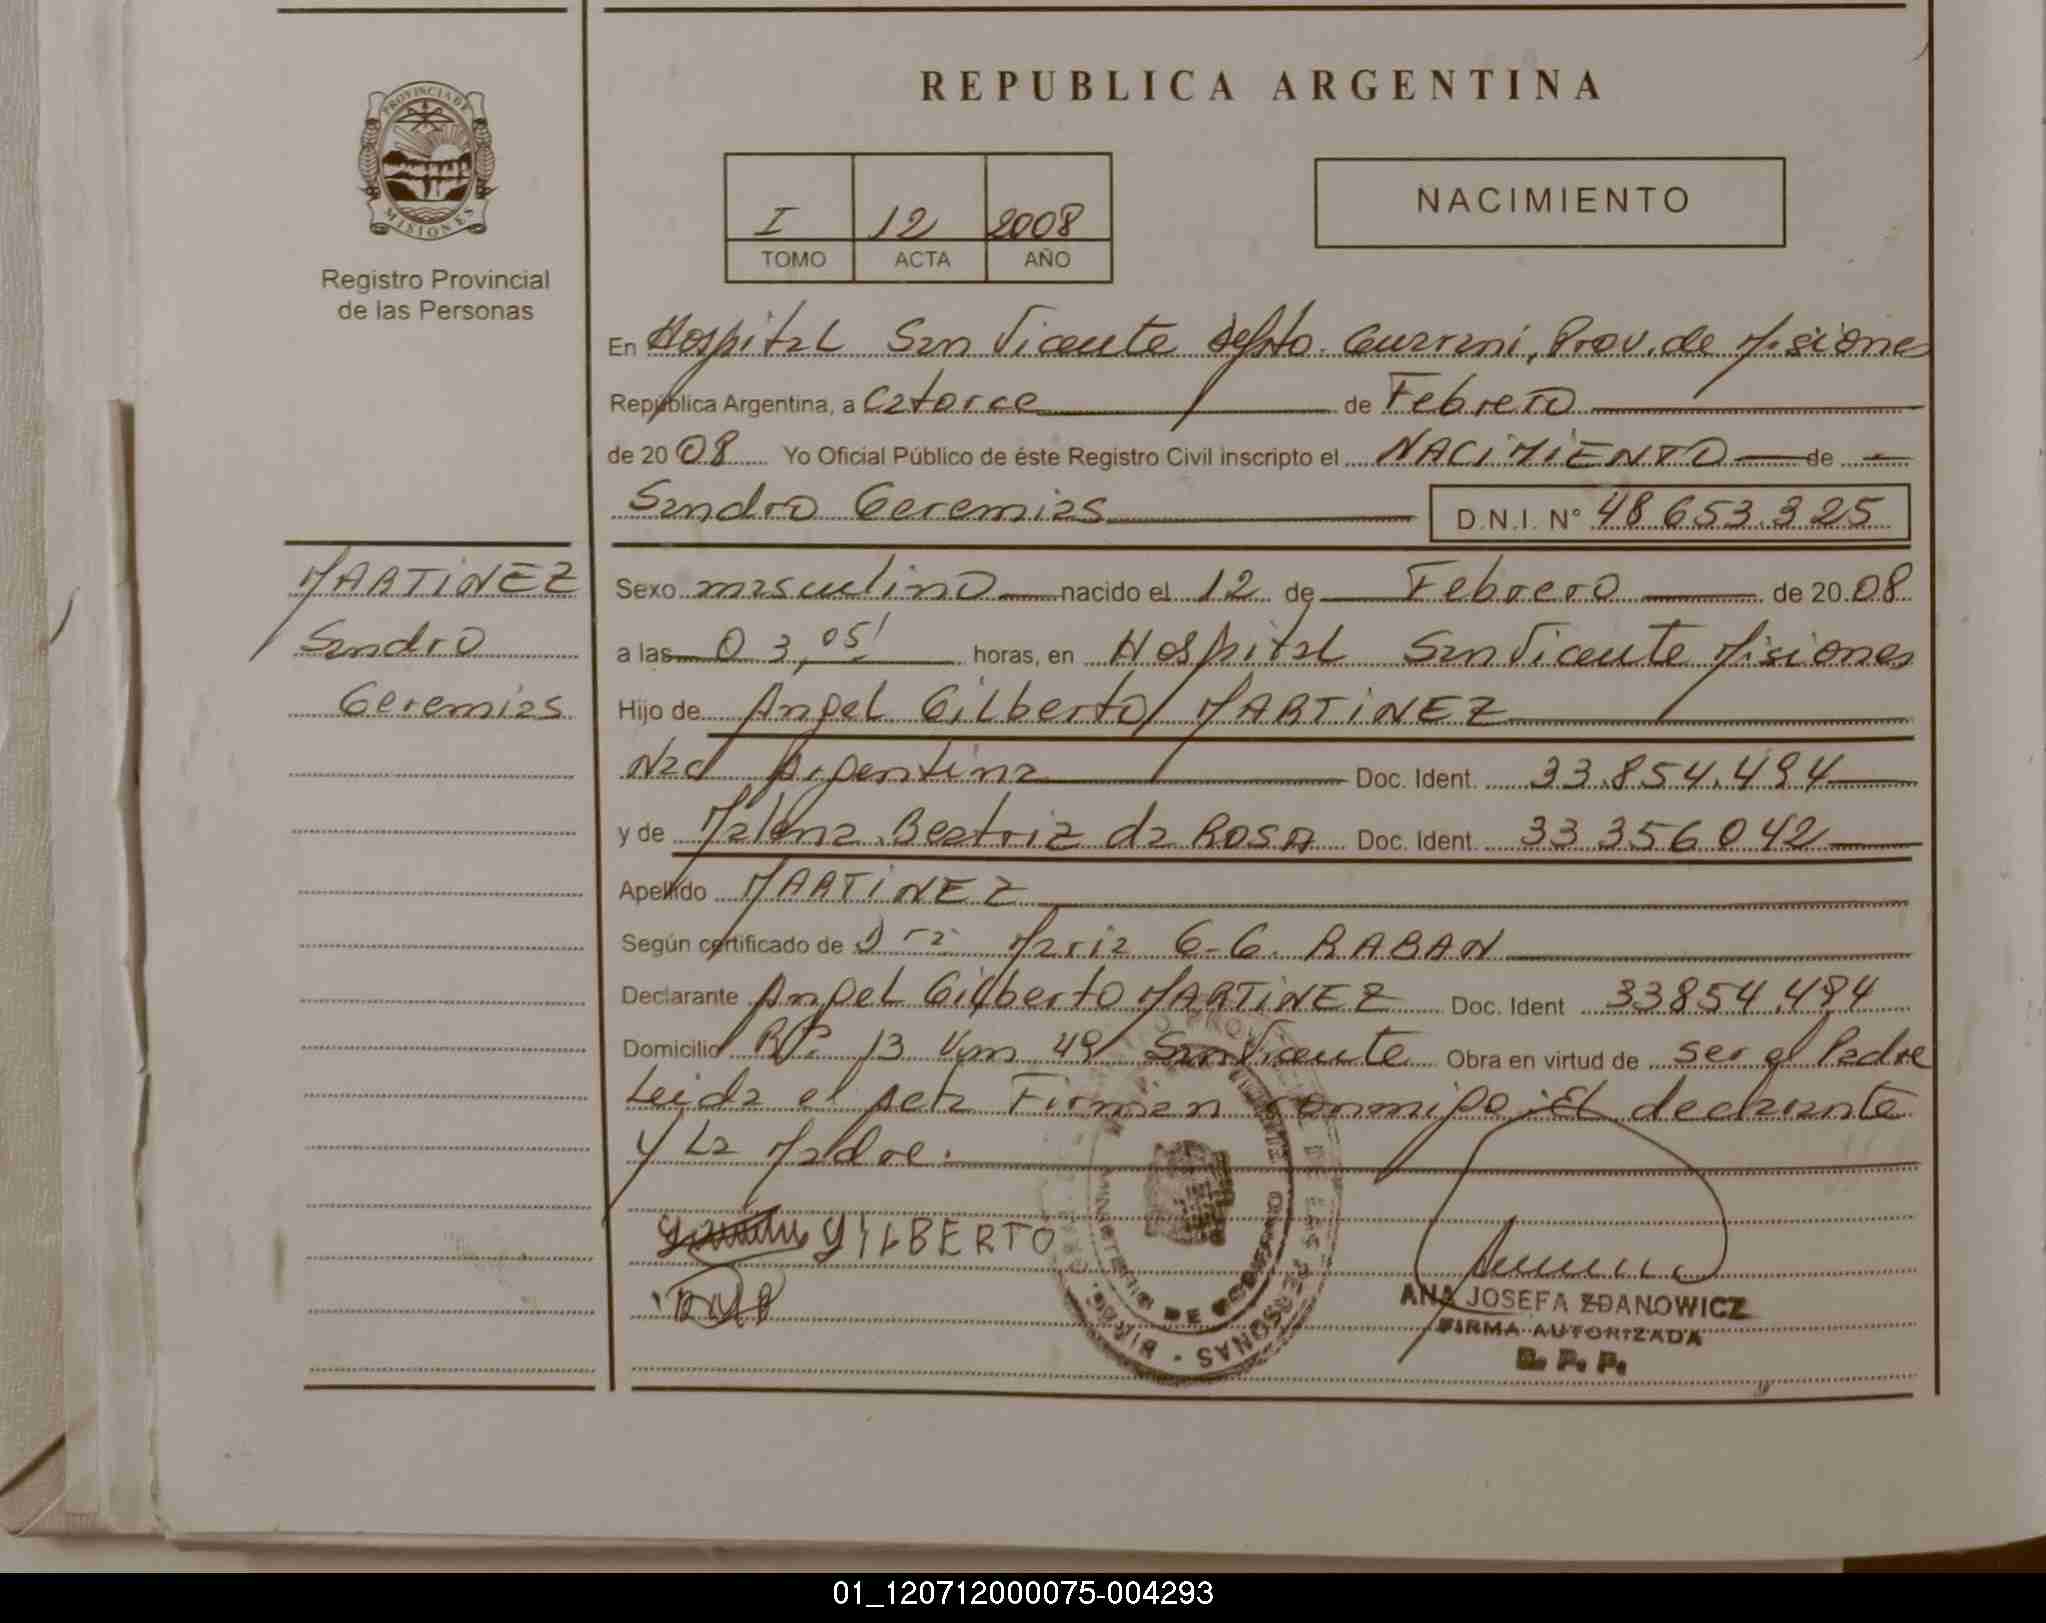 PROVINCIA DE
MISIONES
Registro Provincial
de las Personas
REPUBLICA ARGENTINA
I 12 2008
TOMO ACTA AÑO
NACIMIENTO
En Hospital San Vicente depto. Guarani, Prov. de Misiones
República Argentina, a catorce de Febrero
de 20 08 Yo Oficial Público de éste Registro Civil inscripto el NACIMIENTO de
Sandro Geremias D.N.I. N° 48 653.325
MARTINEZ
Sandro
Geremias
Sexo masculino nacido el 12 de Febrero de 20 08
a las 03,05' horas, en Hospital San Vicente Misiones
Hijo de Angel Gilberto MARTINEZ
Nac Argentina Doc. Ident. 33.854.494
y de Malena Beatriz da ROSA Doc. Ident. 33 356 042
Apellido MARTINEZ
Según certificado de Dra Maria G. G. RABAN
Declarante Angel Gilberto MARTINEZ Doc. Ident 33854.494
Domicilio 13 Km 49 San Vicente Obra en virtud de ser el Padre
Leida el acta Firman conmigo El declarante
y La Madre.
GILBERTO
MINISTERIO DE GOBIERNO
DE LAS PERSONAS
ANA JOSEFA ZDANOWICZ
FIRMA AUTORIZADA
R. P. P.
01_120712000075-004293